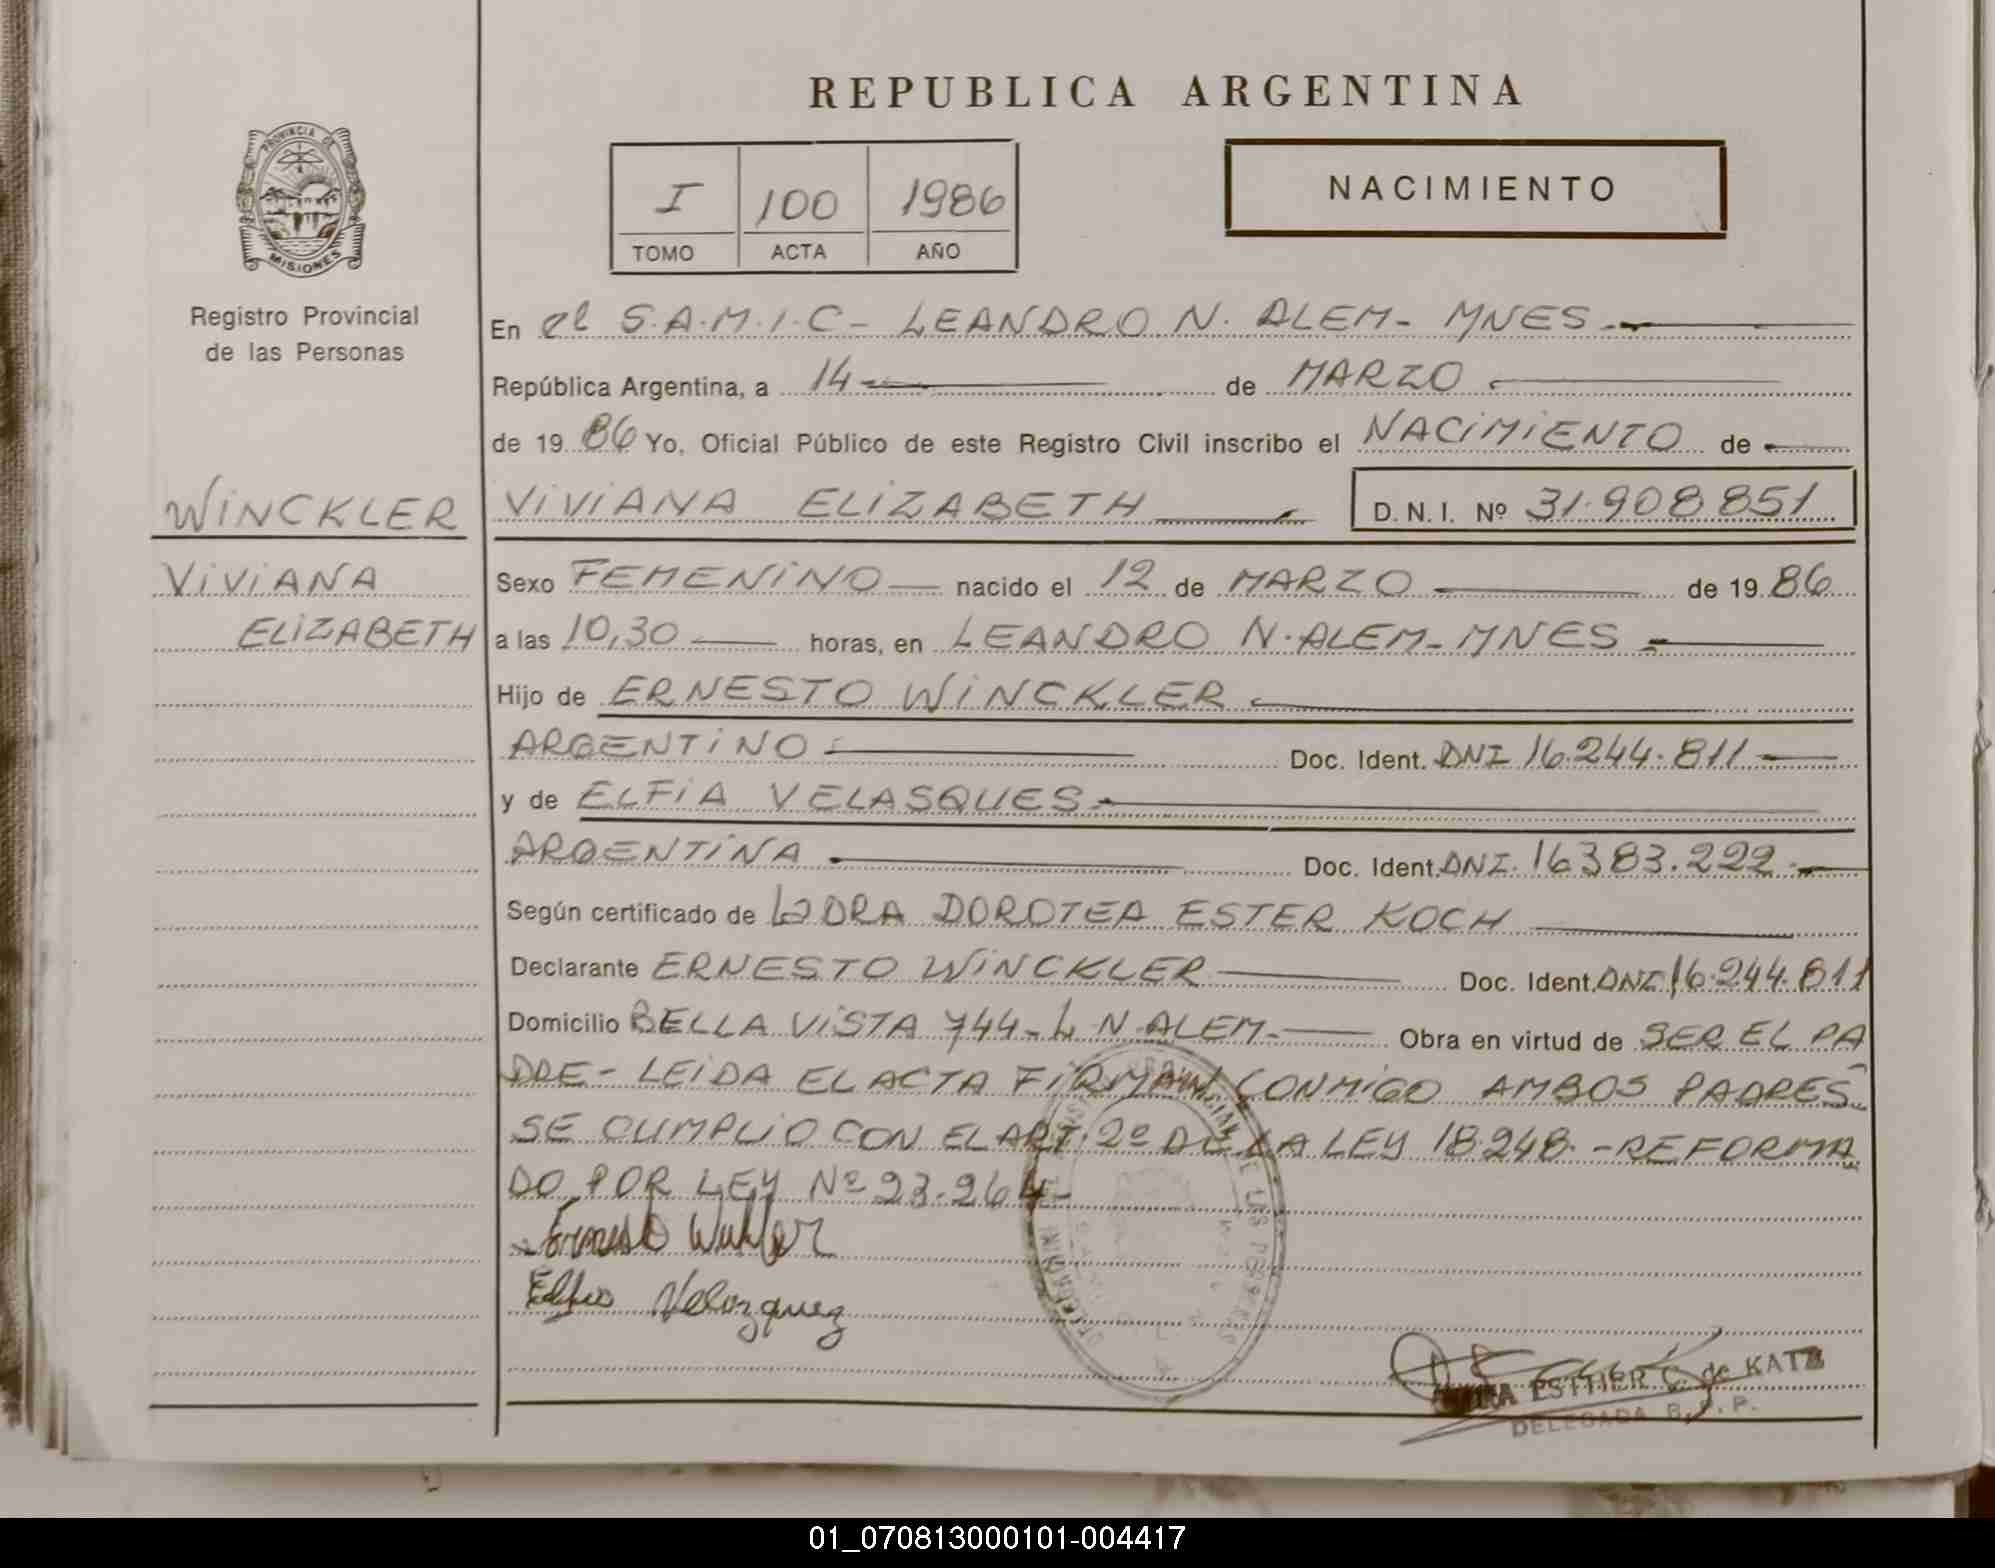 REPUBLICA ARGENTINA
PROVINCIA DE
MISIONES
Registro Provincial
de las Personas
I 100 1986
TOMO ACTA AÑO
NACIMIENTO
En el S.A.M.I.C - LEANDRO N. ALEM - MNES
República Argentina, a 14 de MARZO
de 1986 Yo, Oficial Público de este Registro Civil inscribo el NACIMIENTO de
WINCKLER
VIVIANA ELIZABETH D.N.I. Nº 31.908851
VIVIANA
ELIZABETH
Sexo FEMENINO nacido el 12 de MARZO de 1986
a las 10,30 horas, en LEANDRO N. ALEM - MNES
Hijo de ERNESTO WINCKLER
ARGENTINO Doc. Ident. DNI 16.244.811
y de ELFIA VELASQUES
ARGENTINA Doc. Ident. DNI. 16383.222
Según certificado de DORA DOROTEA ESTER KOCH
Declarante ERNESTO WINCKLER Doc. Ident. DNI 16.244.811
Domicilio BELLA VISTA 744 - L N. ALEM - Obra en virtud de SER EL PA
DRE - LEIDA EL ACTA FIRMAN CONMIGO AMBOS PADRES
SE CUMPLIO CON EL ART. 2º DE LA LEY 18.248. - REFORMA
DO POR LEY Nº 23.264 -
Ernesto Winkler
Elfia Velazquez
ESTHER C. de KATZ
DELEGADA R. P. P.
01_070813000101-004417